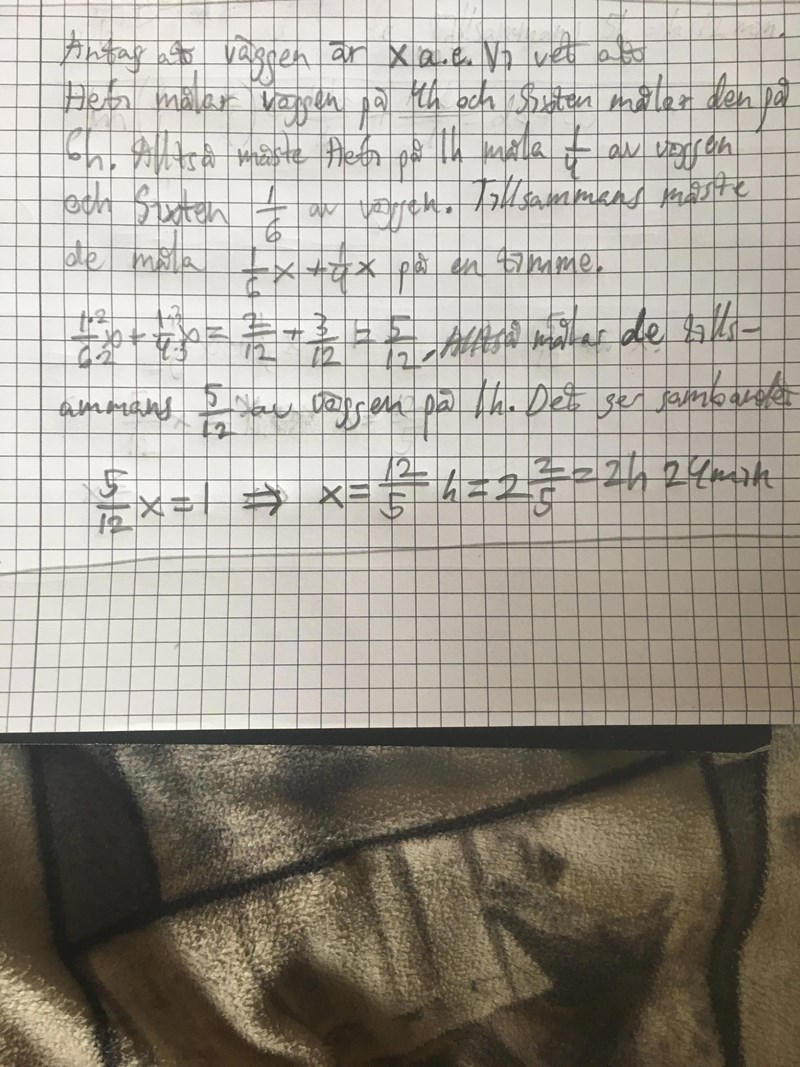 Antag att väggen är x a.e. Vi vet att
målar väggen på 4h och Sixten målar den på
6h. Alltså måste på 1h måla 1/4 av väggen
och Sixten 1/6 av väggen. Tillsammans måste
de måla 1/6 x + 1/4 x på en timme.
1·2/6·2 + 1·3/4·3 = 2/12 + 3/12 = 5/12. Alltså målar de tills-
ammans 5/12 av väggen på 1h. Det ger sambandet
5/12 x = 1 ⇒ x = 12/5 h = 2 2/5 = 2h 24min